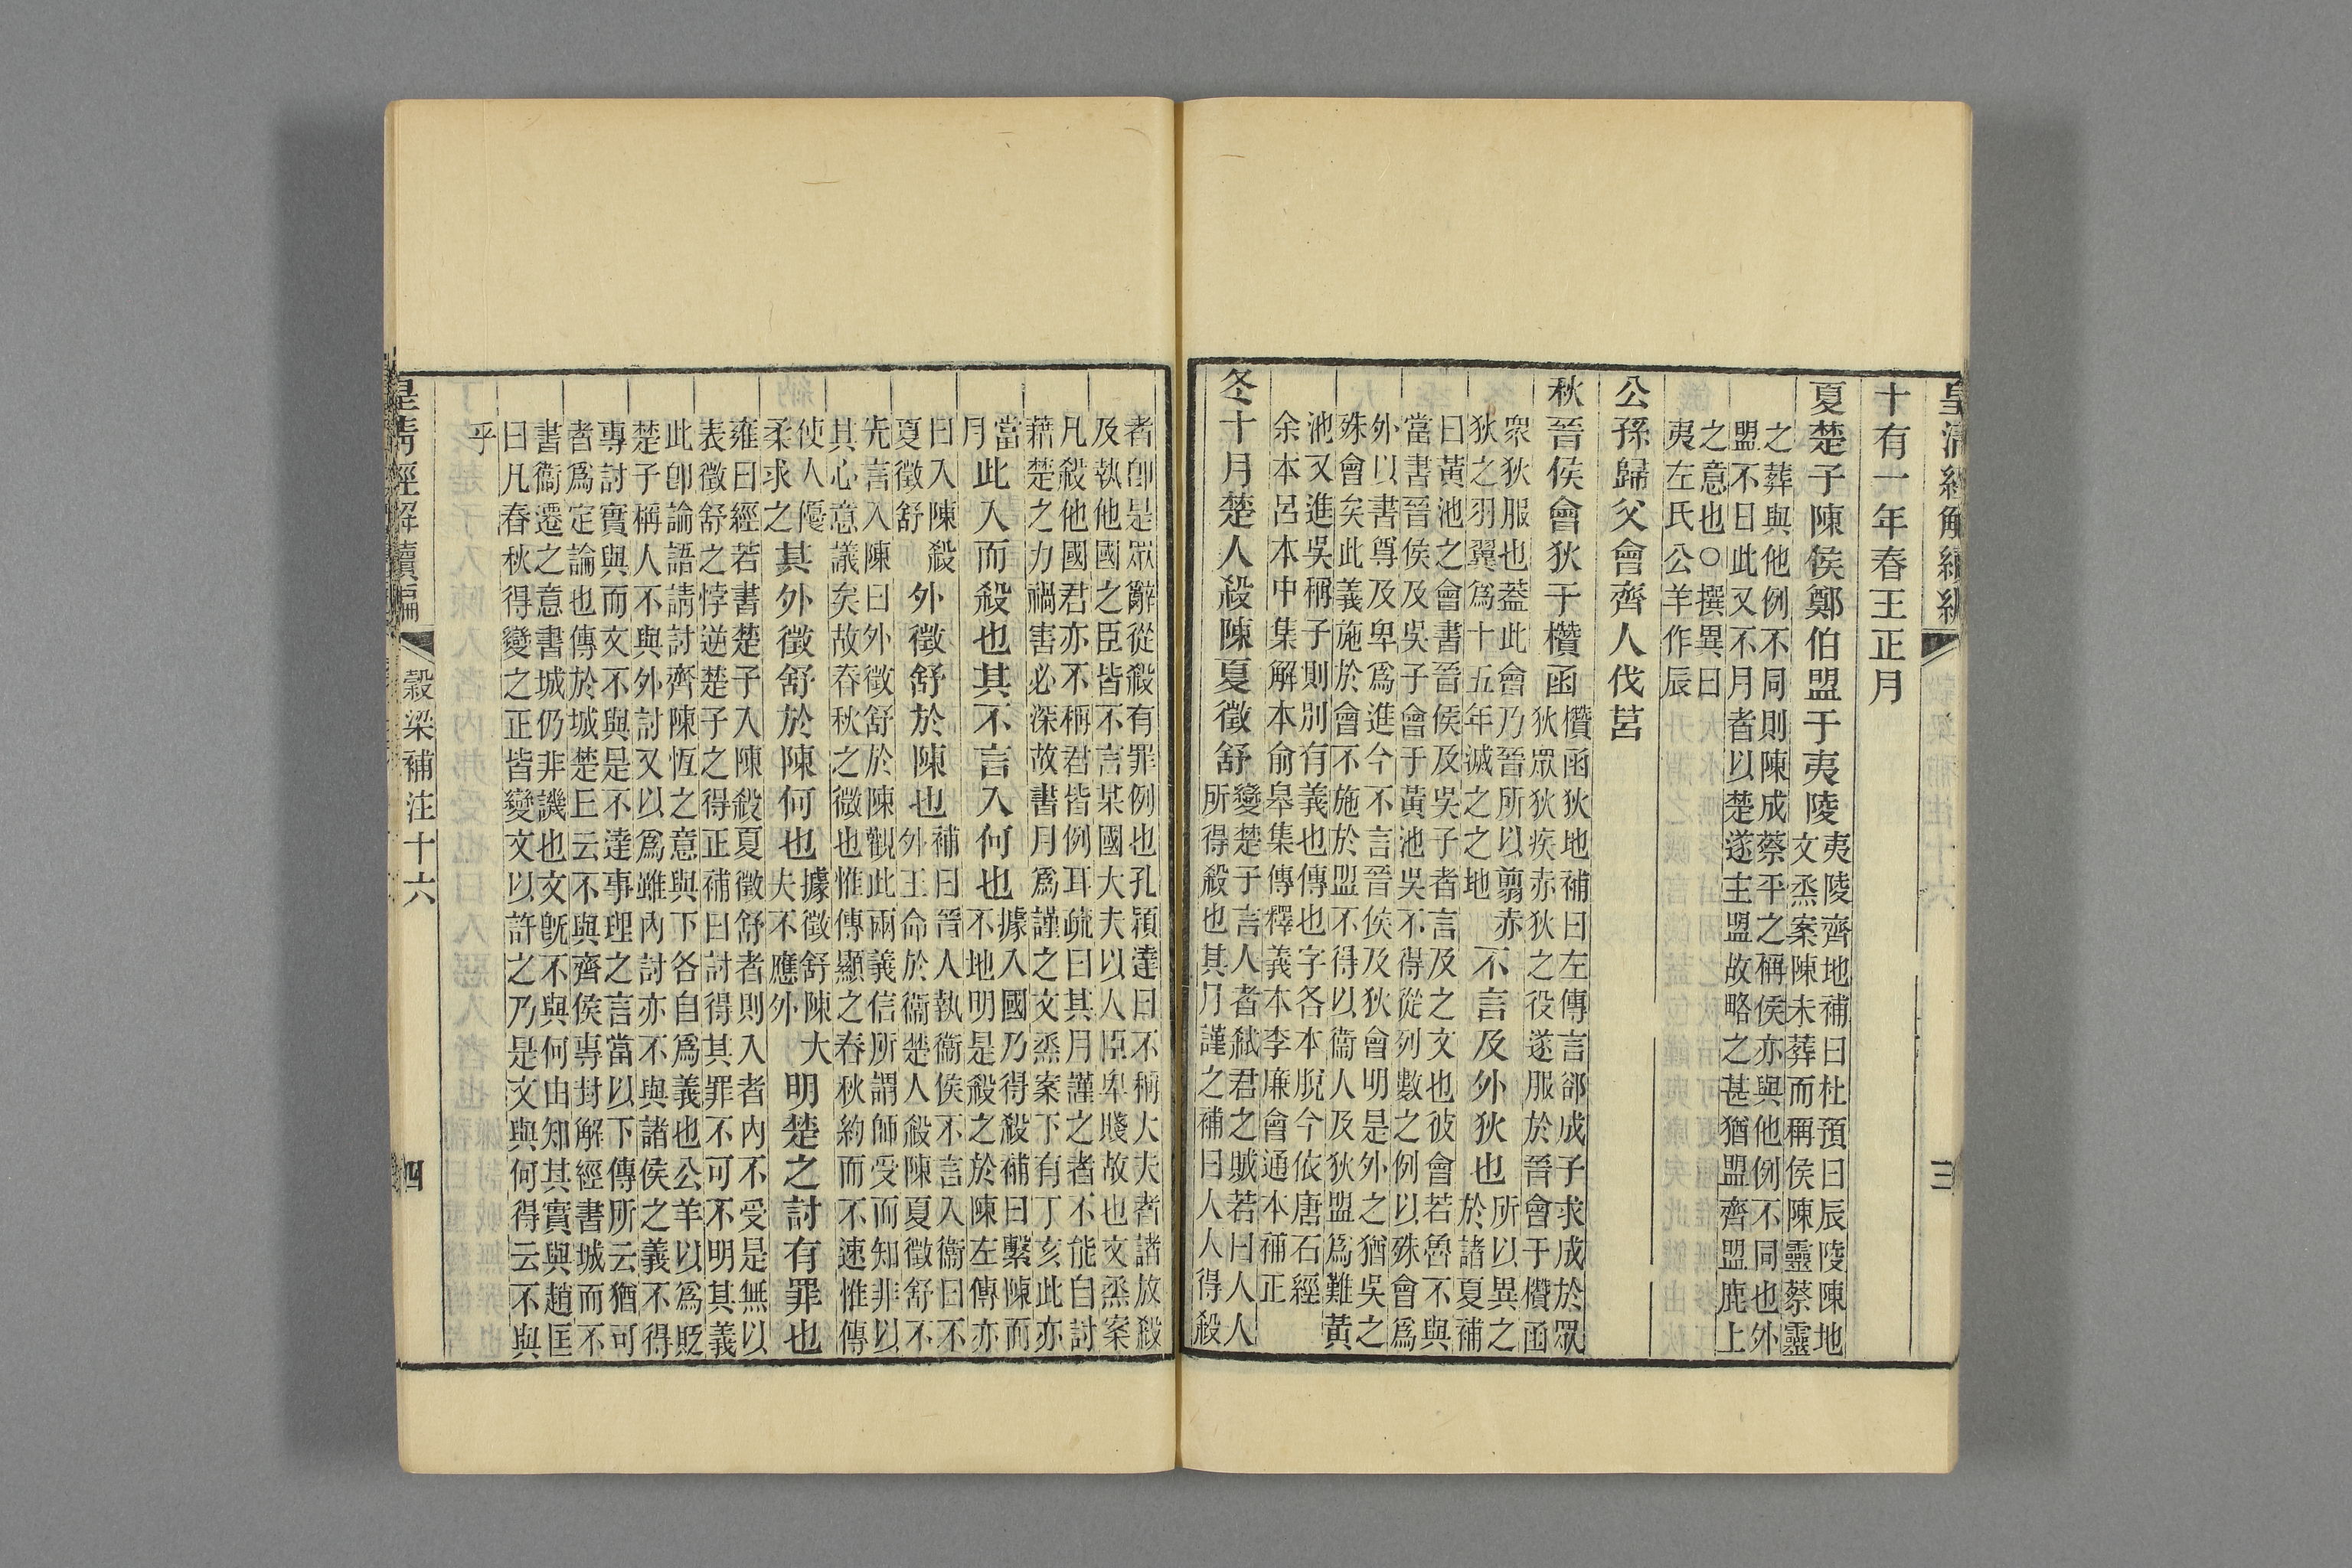 皇清經解續編
三
十有一年春王正月
夏楚子陳侯鄭伯盟于夷陵夷陵齊地補曰杜預曰辰陵陳地
文烝案陳未葬而稱侯陳靈蔡靈
之葬與他例不同則陳成蔡平之稱侯亦與他例不同也外
盟不日此又不月者以楚遂主盟故略之甚猶盟齊盟鹿上
之意也○撰異曰
夷左氏公羊作辰
公孫歸父會齊人伐莒
秋晉侯會狄于欑函欑函狄地補曰左傳言郤成子求成於眾
狄眾狄疾赤狄之役遂服於晉會于欑函
眾狄服也蓋此會乃晉所以翦赤
狄之羽翼為十五年滅之之地
不言及外狄也所以異之
於諸夏補
曰黃池之會書晉侯及吳子者言及之文也彼會若魯不與
當書晉侯及吳子會于黃池吳不得從列數之例以殊會為
外以書尊及卑為進今不言晉侯及狄會明是外之猶吳之
殊會矣此義施於會不施於盟不得以衞人及狄盟為難黃
池又進吳稱子則別有義也傳也字各本脫今依唐石經
余本呂本中集解本俞皋集傳釋義本李廉會通本補正
冬十月楚人殺陳夏徵舒變楚子言人者弒君之賊若曰人人
所得殺也其月謹之補曰人人得殺
者卽是眾辭從殺有罪例也孔穎達曰不稱大夫者諸放殺
及執他國之臣皆不言某國大夫以人臣卑賤故也文烝案
凡殺他國君亦不稱君皆例耳疏曰其月謹之者不能自討
藉楚之力禍害必深故書月為謹之文烝案下有丁亥此亦
當
月
此入而殺也其不言入何也據入國乃得殺補曰繫陳而
不地明是殺之於陳左傳亦
曰入陳殺
夏徵舒
外徵舒於陳也補曰晉人執衞侯不言入衞曰不
外王命於衞楚人殺陳夏徵舒不
先言入陳曰外徵舒於陳觀此兩義信所謂師受而知非以
其心意議矣故春秋之微也惟傳顯之春秋約而不速惟傳
使人優
柔求之
其外徵舒於陳何也據徵舒陳大
夫不應外
明楚之討有罪也
雍曰經若書楚子入陳殺夏徵舒者則入者內不受是無以
表徵舒之悖逆楚子之得正補曰討得其罪不可不明其義
此卽論語請討齊陳恆之意與下各自為義也公羊以為貶
楚子稱人不與外討又以為雖內討亦不與諸侯之義不得
專討實與而文不與是不達事理之言當以下傳所云猶可
者為定論也傳於城楚丘云不與齊侯專封解經書城而不
書衞遷之意書城仍非譏也文旣不與何由知其實與趙匡
曰凡春秋得變之正皆變文以許之乃是文與何得云不與
乎
皇清經解續編
穀梁補注十六
四